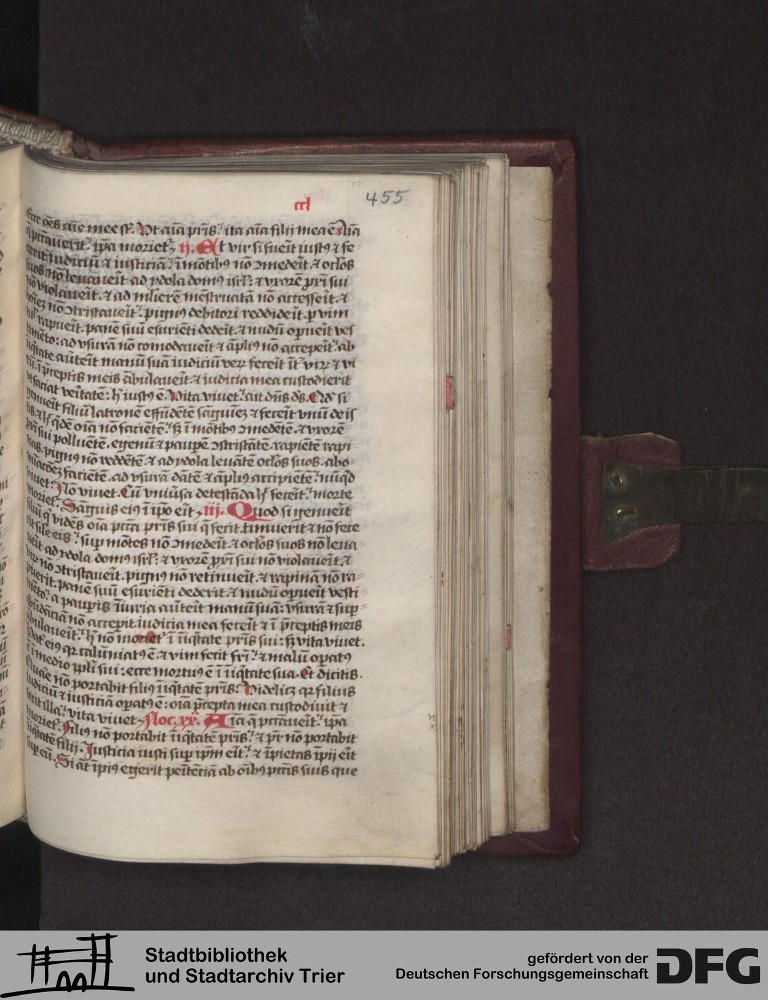 ccl
455
Ecce oēs aīe mee sт̄. Vt aīa pr̄is: ita aīa filij mea ē. Aīa
q̄ pctāuerit: ip̄a moriet᷑. ij. Et vir si fueīt iustꝰ ⁊ fe-
cerit iudiciū ⁊ iusticiā: ī mōtibꝫ nō ꝯmedeīt. ⁊ oclōs
suos nō leuaueīt ad ydola domꝰ isrl̄: ⁊ vxorē pr̄i sui
nō violaueīt. ⁊ ad mlierē mēstruatā nō accesseīt. ⁊
hoīez nō ꝯtristaueīt: pignꝰ debitori reddideīt. ꝑ vim
nil rapueīt. panē suū esuriēti dedeīt. ⁊ nudū oꝑueīt ves
timēto: ad vsurā nō comodaueīt ⁊ āpliꝰ nō accepeīt: ab
iīqtate auteīt manū suā iudiciū veꝝ feceīt īt᷑ virꝝ ⁊ vi
rū. ī p̄ceptis meis ābulaueīt. ⁊ iudicia mea custodierit
vt faciat veītatē: h̄ iustꝰ ē. Vita viuet: ait dn̄s ds̄. Qd̄ si
genueīt filiū latronē effūdētē sāguiez ⁊ feceīt vnū de is
tis. ⁊ h̄ q̄dē oīa nō faciētē: sꝫ ī mōtibꝫ ꝯmedētē ⁊ vxorē
pr̄i sui polluētē. egenū ⁊ pauꝑē ꝯtristātē rapiētē rapi
nas. pignꝰ nō reddētē. ⁊ ad ydola leuātē oclōs suos. abo-
minacōez faciētē. ad vsurā dātē ⁊ āpliꝰ accipiētē: nūqd
viuet: Nō viuet. Cū vniūsa detestāda h̄ feceīt: morte
moriet᷑. Sāguis eiꝰ ī ip̄o eīt. iij. Quod si genueīt
filiū q̄ vidēs oīa pctā pr̄is sui q̄ fecit. timuerit ⁊ nō fece
rit sīle eis: suꝑ mōtes nō ꝯmedeīt. ⁊ oclōs suos nō leua-
ueīt ad ydola domꝰ isrl̄: ⁊ vxorē pr̄i sui nō violaueīt. ⁊
virū nō ꝯtristaueīt. pignꝰ nō retinueīt. ⁊ rapinā nō ra-
puerit. panē suū esuriēti dederit. ⁊ nudū oꝑueīt vesti
mēto. a pauꝑis īiuria auteīt manū suā: vsurā ⁊ suꝑ-
hūdāciā nō acceꝑit. iudicia mea feceīt ⁊ ī p̄ceptis meis
ābulaueīt: h̄ nō moriet᷑ ī iīqtate pr̄is sui: sꝫ vita viuet.
Pat᷑ eiꝰ qꝛ calūniatꝰ ē ⁊ vim fecit fr̄i: ⁊ malū oꝑatꝰ
ē ī medio ppl̄i sui: ecce mortuꝰ ē ī iīqtate sua. Et dicitis.
Quāe nō portabit filiꝰ iīqtatē pr̄is: Videlicꝫ qꝛ filius
iudiciū ⁊ iusticiā oꝑatꝰ ē: oīa p̄cepta mea custodiuit ⁊
fecit illa: vita viuet. Aīa q̄ pctāueīt: ip̄a
moriet᷑. Filiꝰ nō portabit iīqtatē pr̄is: ⁊ pr̄ nō portabit
iīqtatē filij. Iusticia iusti suꝑ ip̄m eīt: ⁊ īpietas īpij eīt
suꝑ eū. Si āt īpiꝰ egerit peītēciā ab oībꝫ pctīs suis que
Stadtbibliothek
und Stadtarchiv Trier
gefördert von der
Deutschen Forschungsgemeinschaft
DFG